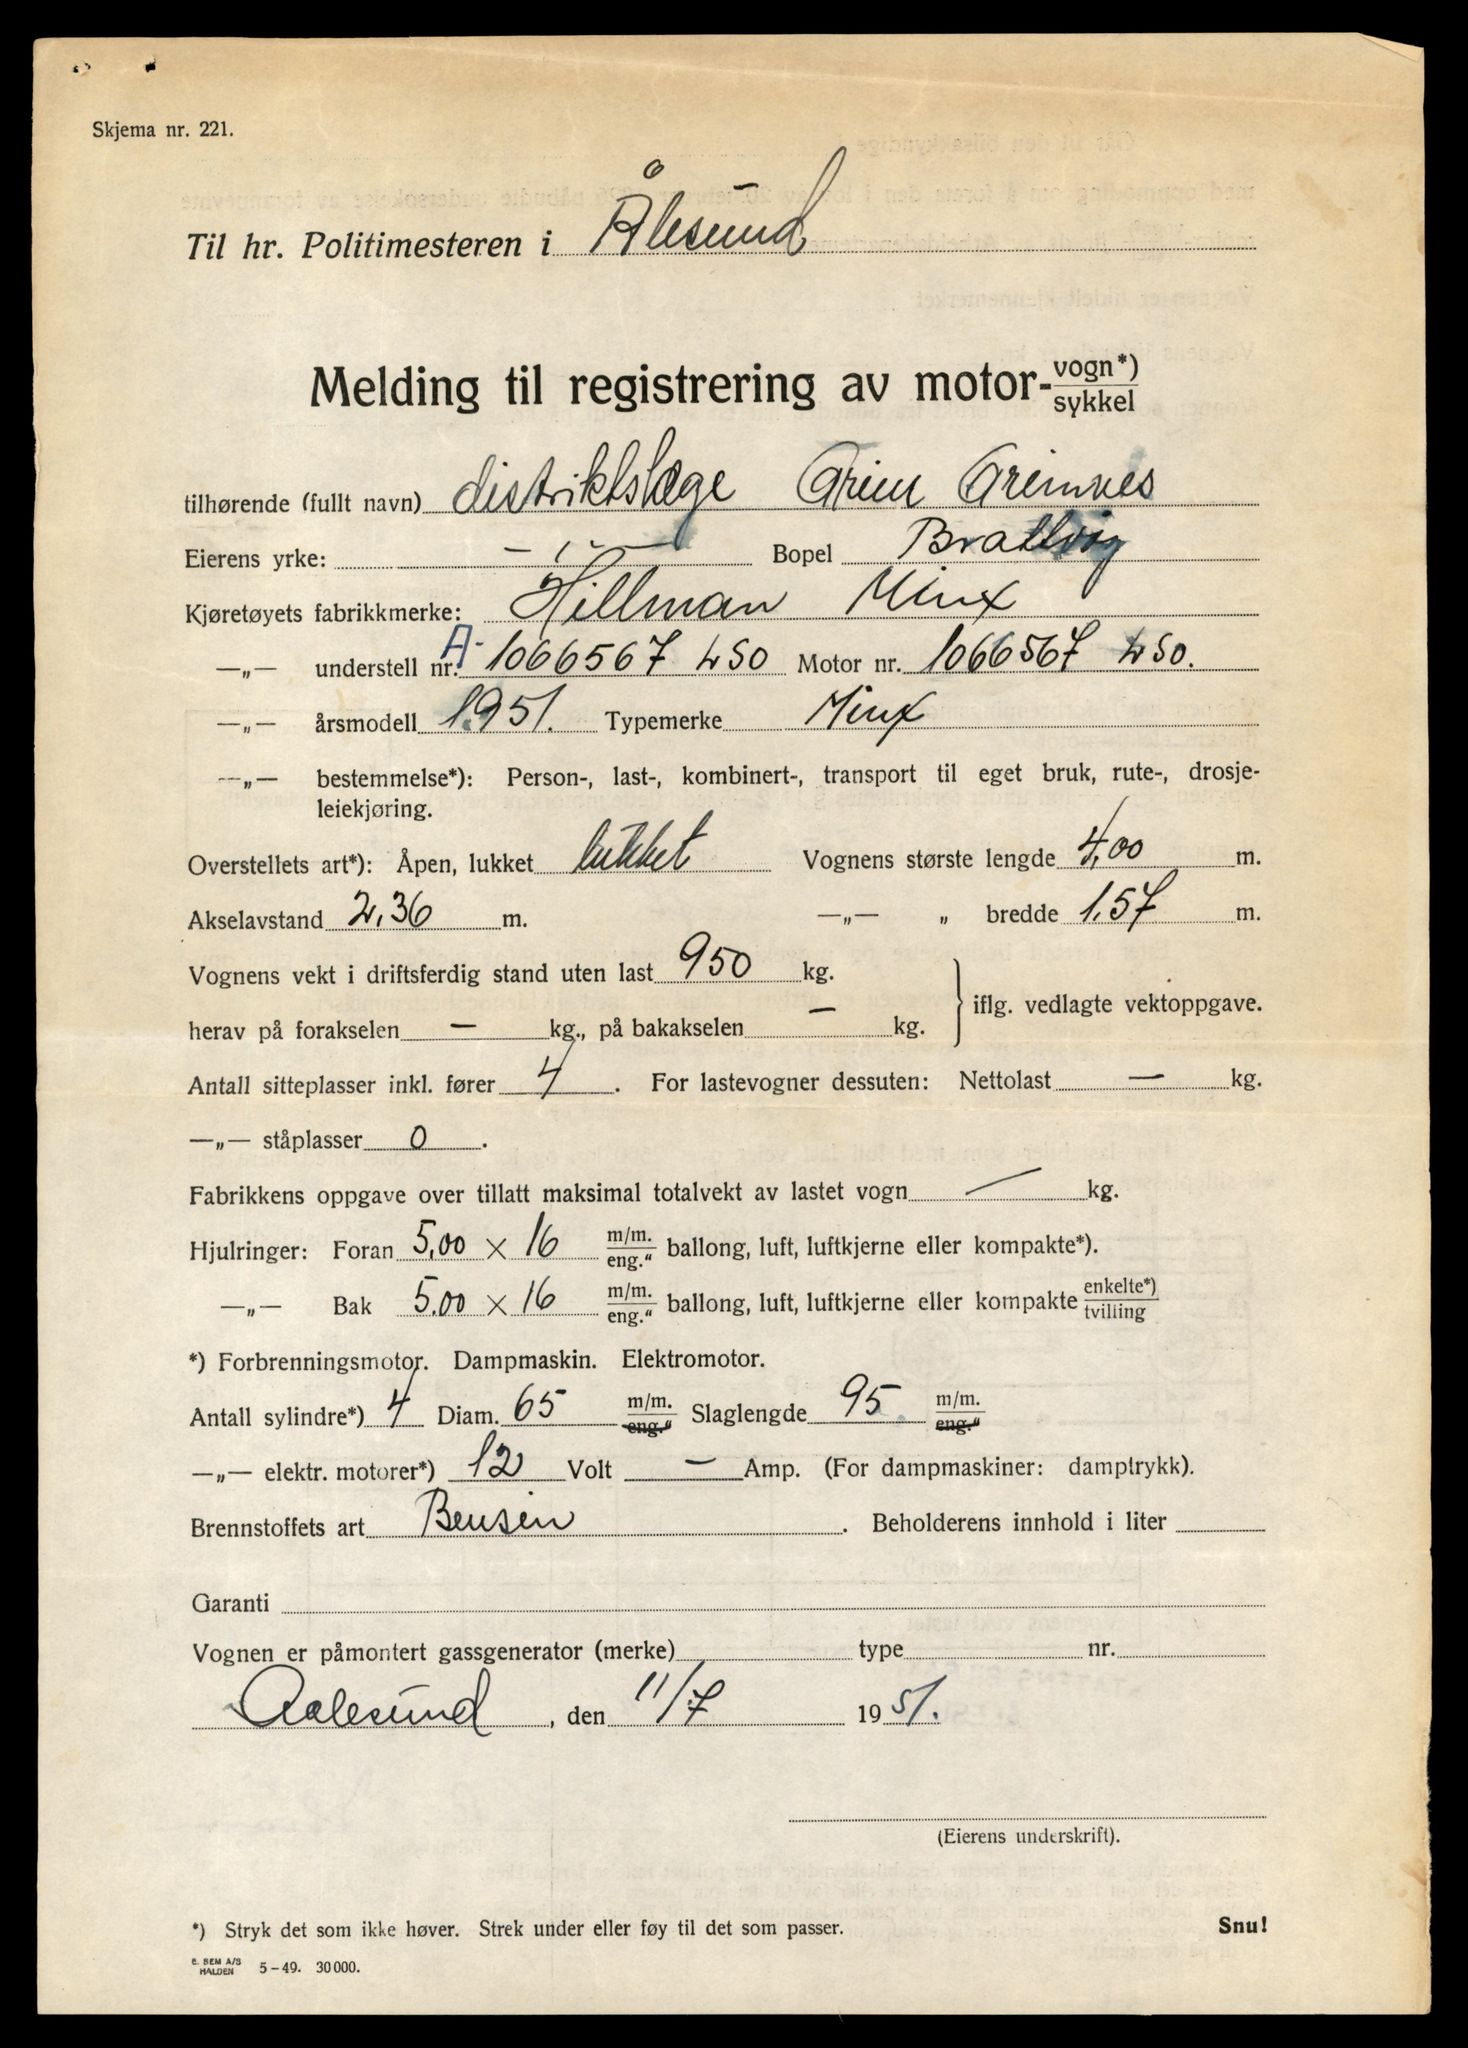 Skjema nr. 221.
Til hr. Politimesteren i Ålesund
Melding til registrering av motor-vogn*) sykkel
tilhørende (fullt navn) distriktslege Grim Grimnes
Eierens yrke: — „ — Bopel Brattvåg
Kjøretøyets fabrikkmerke: Hillman Minx
—„— understell nr. A-1066567 LSO Motor nr. 1066567 LSO.
—„— årsmodell 1951. Typemerke Minx
—„— bestemmelse*): Person-, last-, kombinert-, transport til eget bruk, rute-, drosje-
leiekjøring.
Overstellets art*): Åpen, lukket lukket Vognens største lengde 4,00 m.
Akselavstand 2,36 m. —„— „ bredde 1,57 m.
Vognens vekt i driftsferdig stand uten last 950 kg.
herav på forakselen — kg., på bakakselen — kg. } iflg. vedlagte vektoppgave.
Antall sitteplasser inkl. fører 4. For lastevogner dessuten: Nettolast — kg.
—„— ståplasser 0.
Fabrikkens oppgave over tillatt maksimal totalvekt av lastet vogn — kg.
Hjulringer: Foran 5,00 × 16 m/m. eng." ballong, luft, luftkjerne eller kompakte*).
—„— Bak 5,00 × 16 m/m. eng." ballong, luft, luftkjerne eller kompakte enkelte*) tvilling
*) Forbrenningsmotor. Dampmaskin. Elektromotor.
Antall sylindre*) 4 Diam. 65 m/m. eng." Slaglengde 95. m/m. eng."
—„— elektr. motorer*) 12 Volt — Amp. (For dampmaskiner: damptrykk).
Brennstoffets art Bensin. Beholderens innhold i liter
Garanti
Vognen er påmontert gassgenerator (merke) type nr.
Aalesund, den 11/7 1951.
(Eierens underskrift).
*) Stryk det som ikke høver. Strek under eller føy til det som passer. Snu!
E. SEM A/S HALDEN 5-49. 30000.